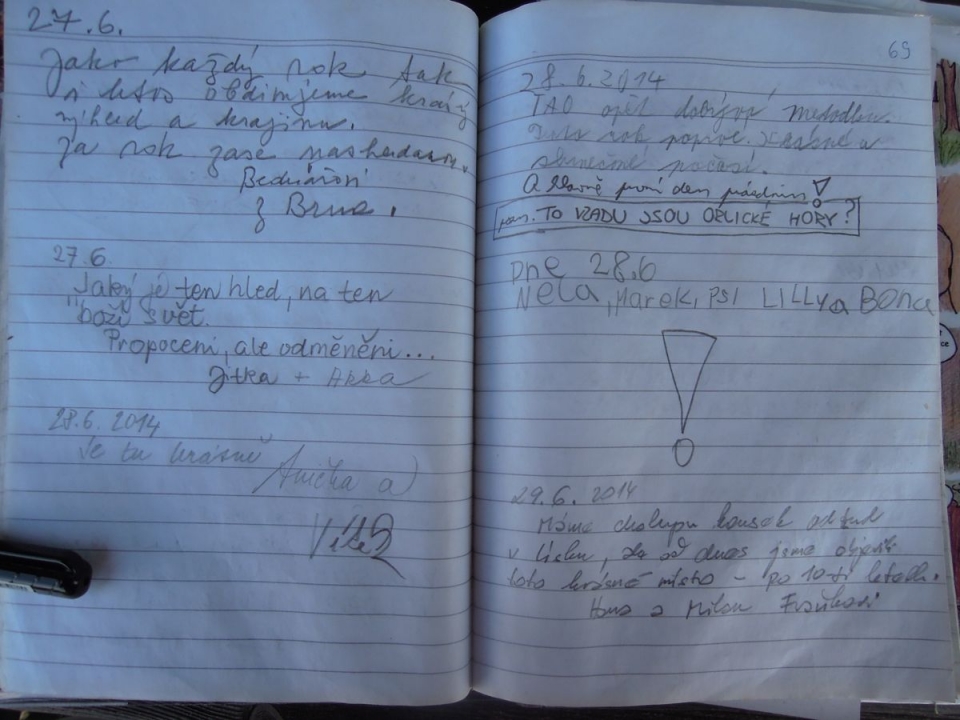 27.6.
Jako každý rok tak
i letos obdivujeme krásný
výhled a krajinu.
Za rok zase nashledanou
Bednářovi
z Brna.
27.6.
"Jaký je ten hled, na ten
boží svět.
Propoceni, ale odměněni...
Jitka + Akka
28.6. 2014
Je tu krásně
Anička a
Vítek
69
28.6.2014
TAO opět dobývá
Tento rok poprvé. Krásné a
slunečné počasí.
A hlavně první den prázdnin!
pozn. TO VZADU JSOU ORLICKÉ HORY?
Dne 28.6
Nela, Marek, PSI LILLY a Bona
!
29.6. 2014
Máme chalupu kousek odtud
v až dnes jsme objevili
toto krásné místo - po 10-ti letech.
Hana a Milan